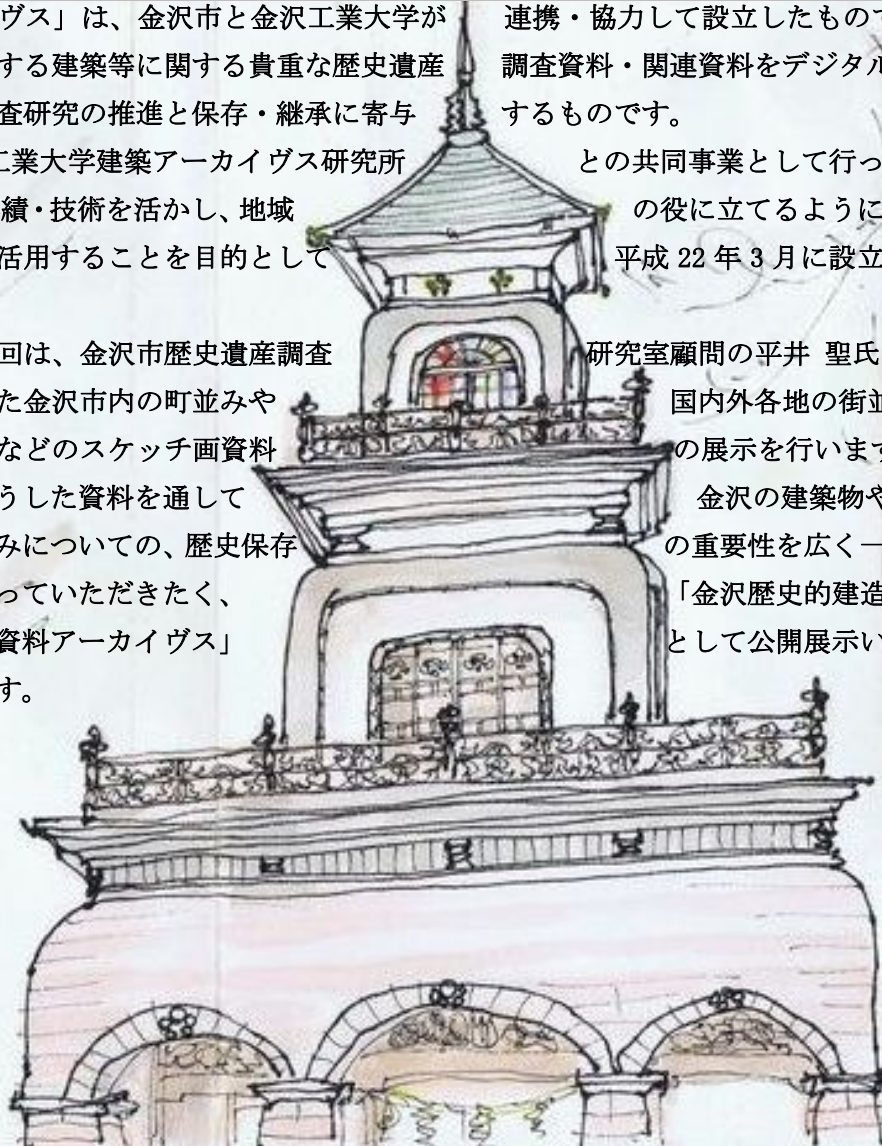 ヴス」は、金沢市と金沢工業大学が 連携・協力して設立したもので
する建築等に関する貴重な歴史遺産 調査資料・関連資料をデジタル
査研究の推進と保存・継承に寄与 するものです。
工業大学建築アーカイヴス研究所 との共同事業として行っ
績・技術を活かし、地域 の役に立てるように
活用することを目的として 平成 22 年 3 月に設立
回は、金沢市歴史遺産調査 研究室顧問の平井 聖氏
た金沢市内の町並みや 国内外各地の街並
などのスケッチ画資料 の展示を行います
うした資料を通して 金沢の建築物や
みについての、歴史保存 の重要性を広く一
っていただきたく、 「金沢歴史的建造
資料アーカイヴス」 として公開展示い
す。